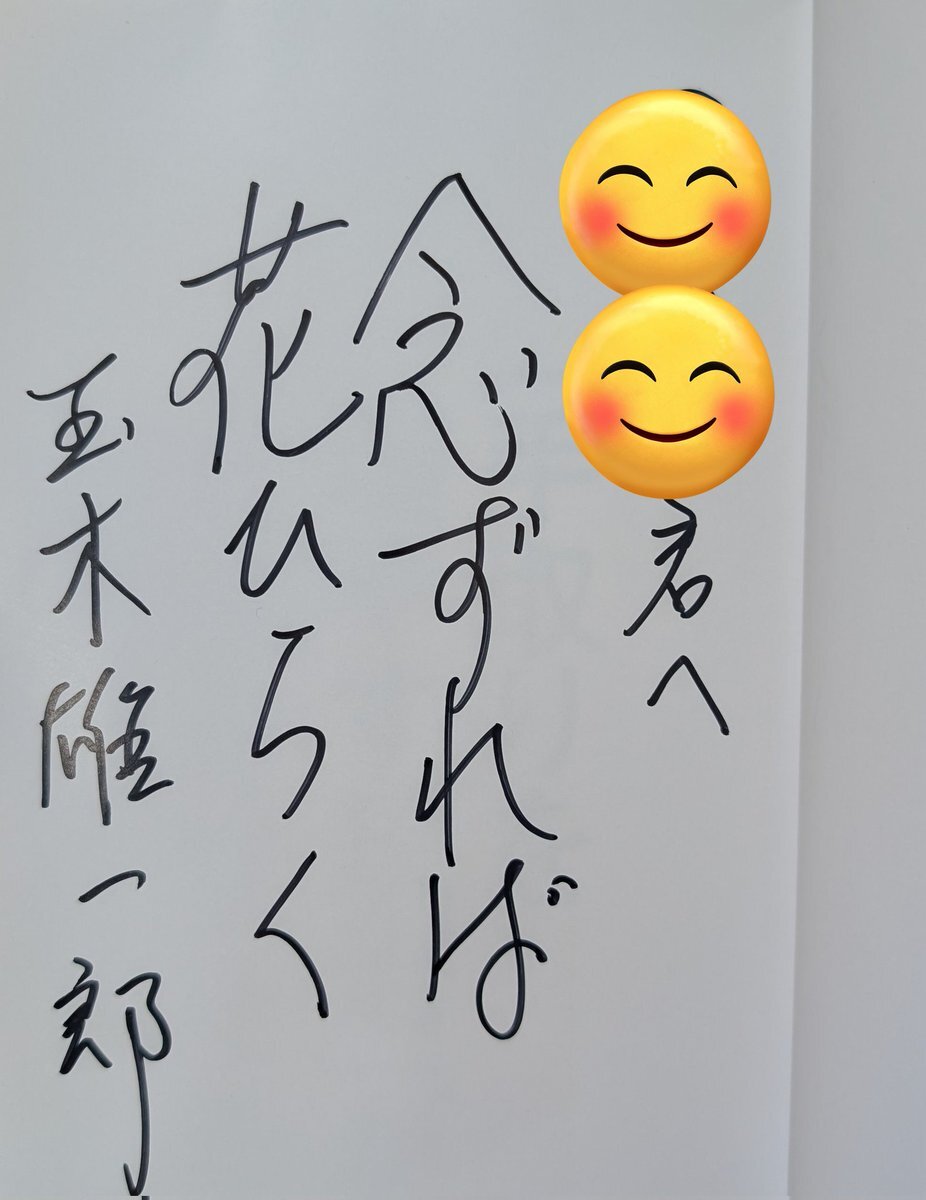 君へ
念ずれば
花ひらく
玉木雄一郎